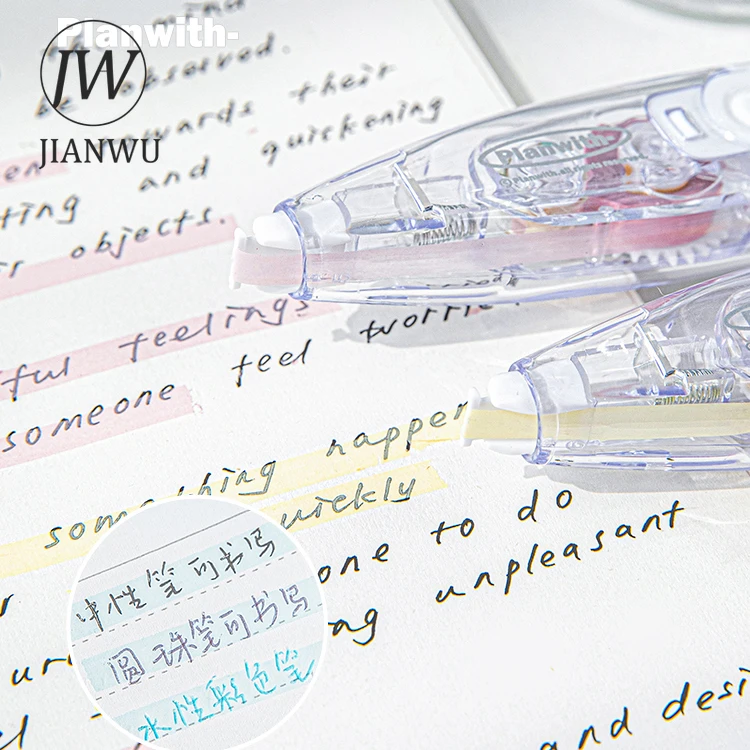 Planwith-
JW
JIANWU
be observed.
towards their
and quickening
objects.
Planwith-
feelings
feel worrie
someone
happen
something
uickly
one to do
unpleasant
and desi
中性笔可书写
圆珠笔可书写
水性彩色笔